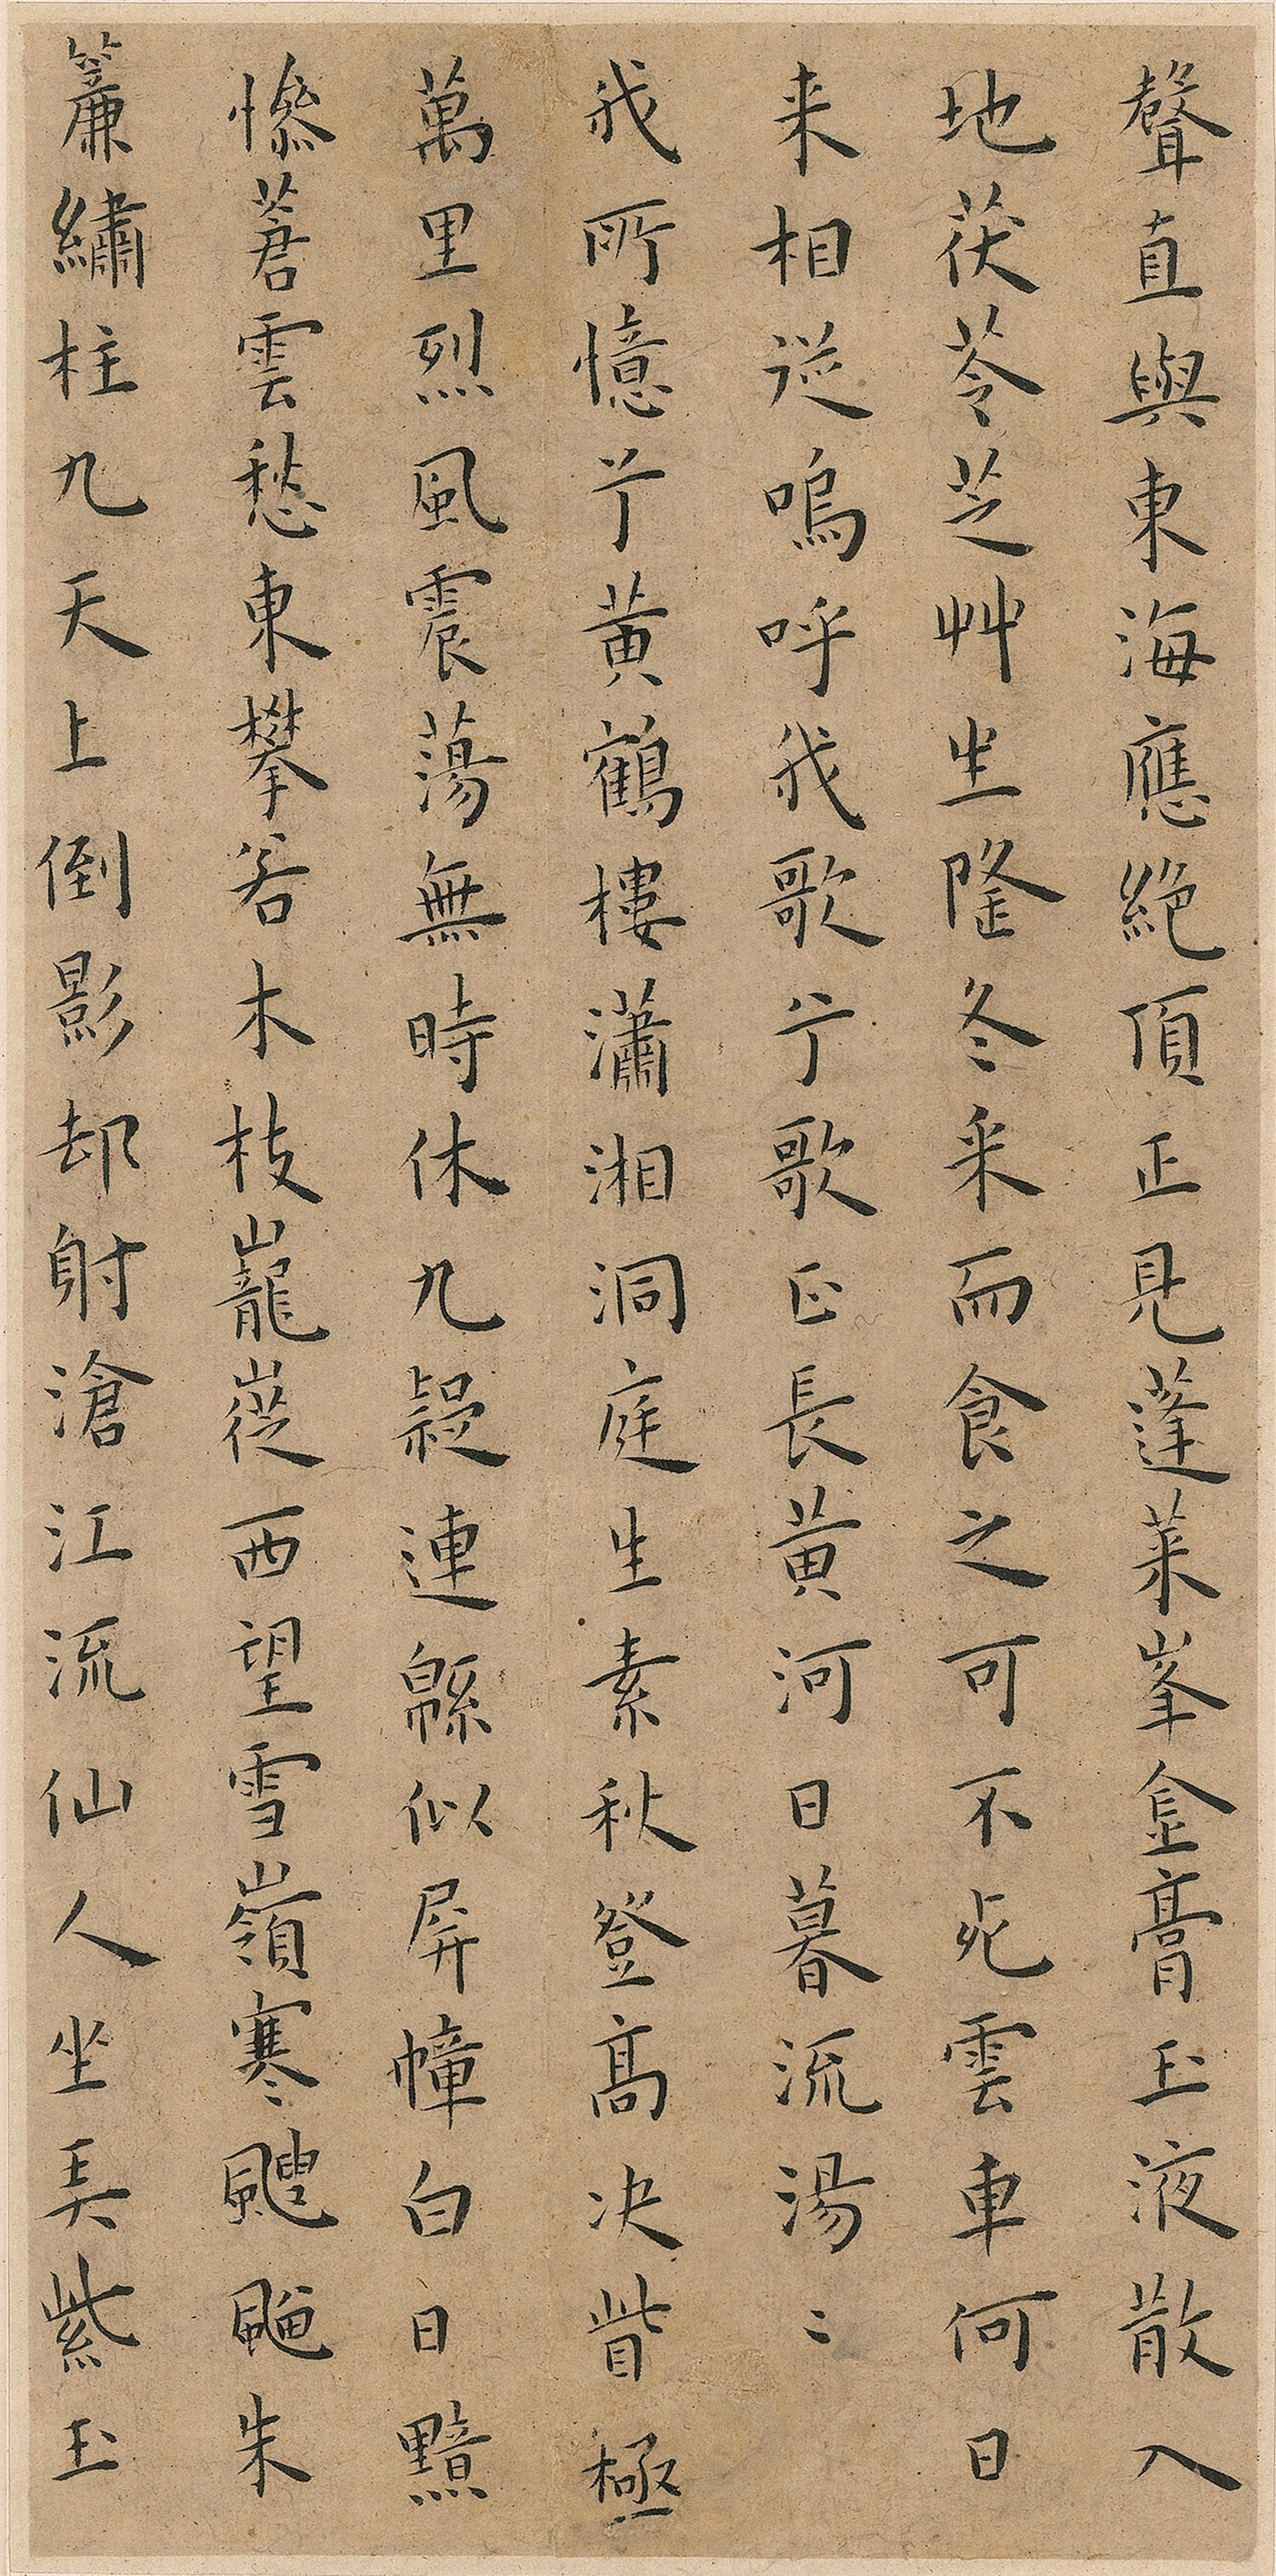 聲直與東海應絕頂正見蓬萊峯金膏玉液散入
地茯苓芝艸生隆冬采而食之可不死雲車何日
来相從嗚呼我歌兮歌正長黃河日暮流湯〻
我所憶兮黃鶴樓瀟湘洞庭生素秋登高決眥極
萬里烈風震蕩無時休九疑連緜似屏幛白日黯
慘蒼雲愁東攀若木枝巃嵸西望雪嶺寒颼飀朱
簾繡柱九天上倒影却射滄江流仙人坐吴紫玉